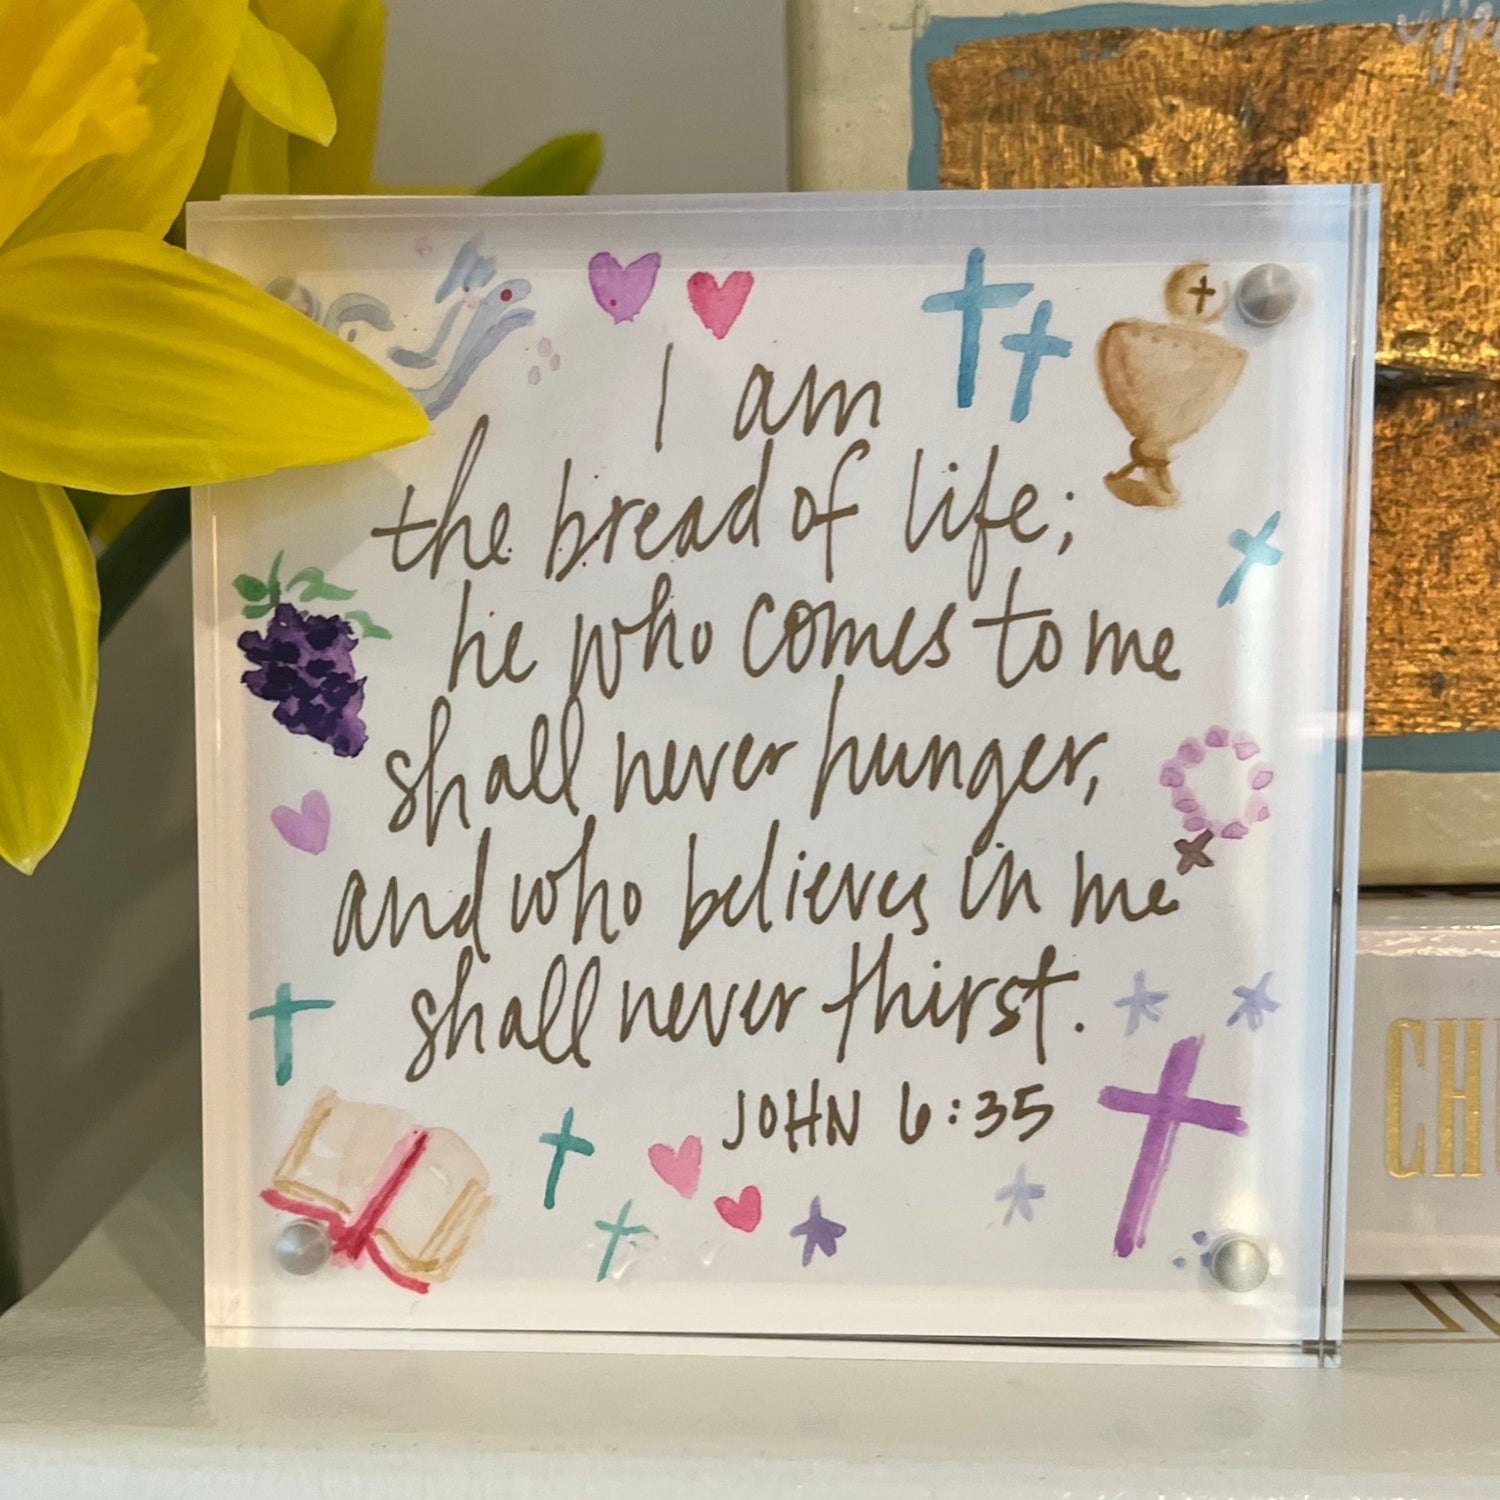 I am
the bread of life;
he who comes to me
shall never hunger,
and who believes in me
shall never thirst.
JOHN 6:35